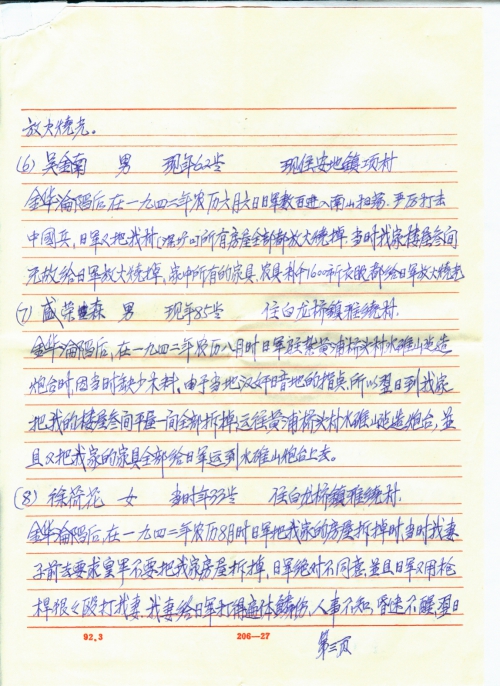 放火烧光。
(6) 吴金南 男 现年62岁 现住安地镇项村
金华沦陷后在一九四二年农历六月六日日军数百进入南山扫荡.严厉打击
中國兵,日军又把我村所有房屋全部都放火烧掉.当时我家楼屋叁间
无故给日军放火烧掉,家中所有的家具,农具 1600斤衣服都给日军放火烧光
(7) 盛荣森 男 现年85岁 住白龙桥镇 村.
金华沦陷后,在一九四二年农历八月时日军驻扎黄浦桥头村水碓山建造
炮台时,因当时缺少木料.由于当地汉奸暗地的指点,所以翌日到我家
把我的楼屋叁间平屋一间全部拆掉,运往黄浦桥头村水碓山建造炮台,並
且又把我家的家具全部给日军运到水碓山炮台上去。
(8) 徐荷花 女 当时年33岁 住白龙桥镇 村.
金华沦陷后,在一九四二年农历8月时日军把我家的房屋拆掉时,当时我妻
子前去要求皇军不要把我家房屋拆掉,日军绝对不同意,並且日军又用枪
桿狠狠殴打我妻.我妻给日军打得遍体鳞伤,人事不知,昏迷不醒,翌日
92.3 206—27
第三页